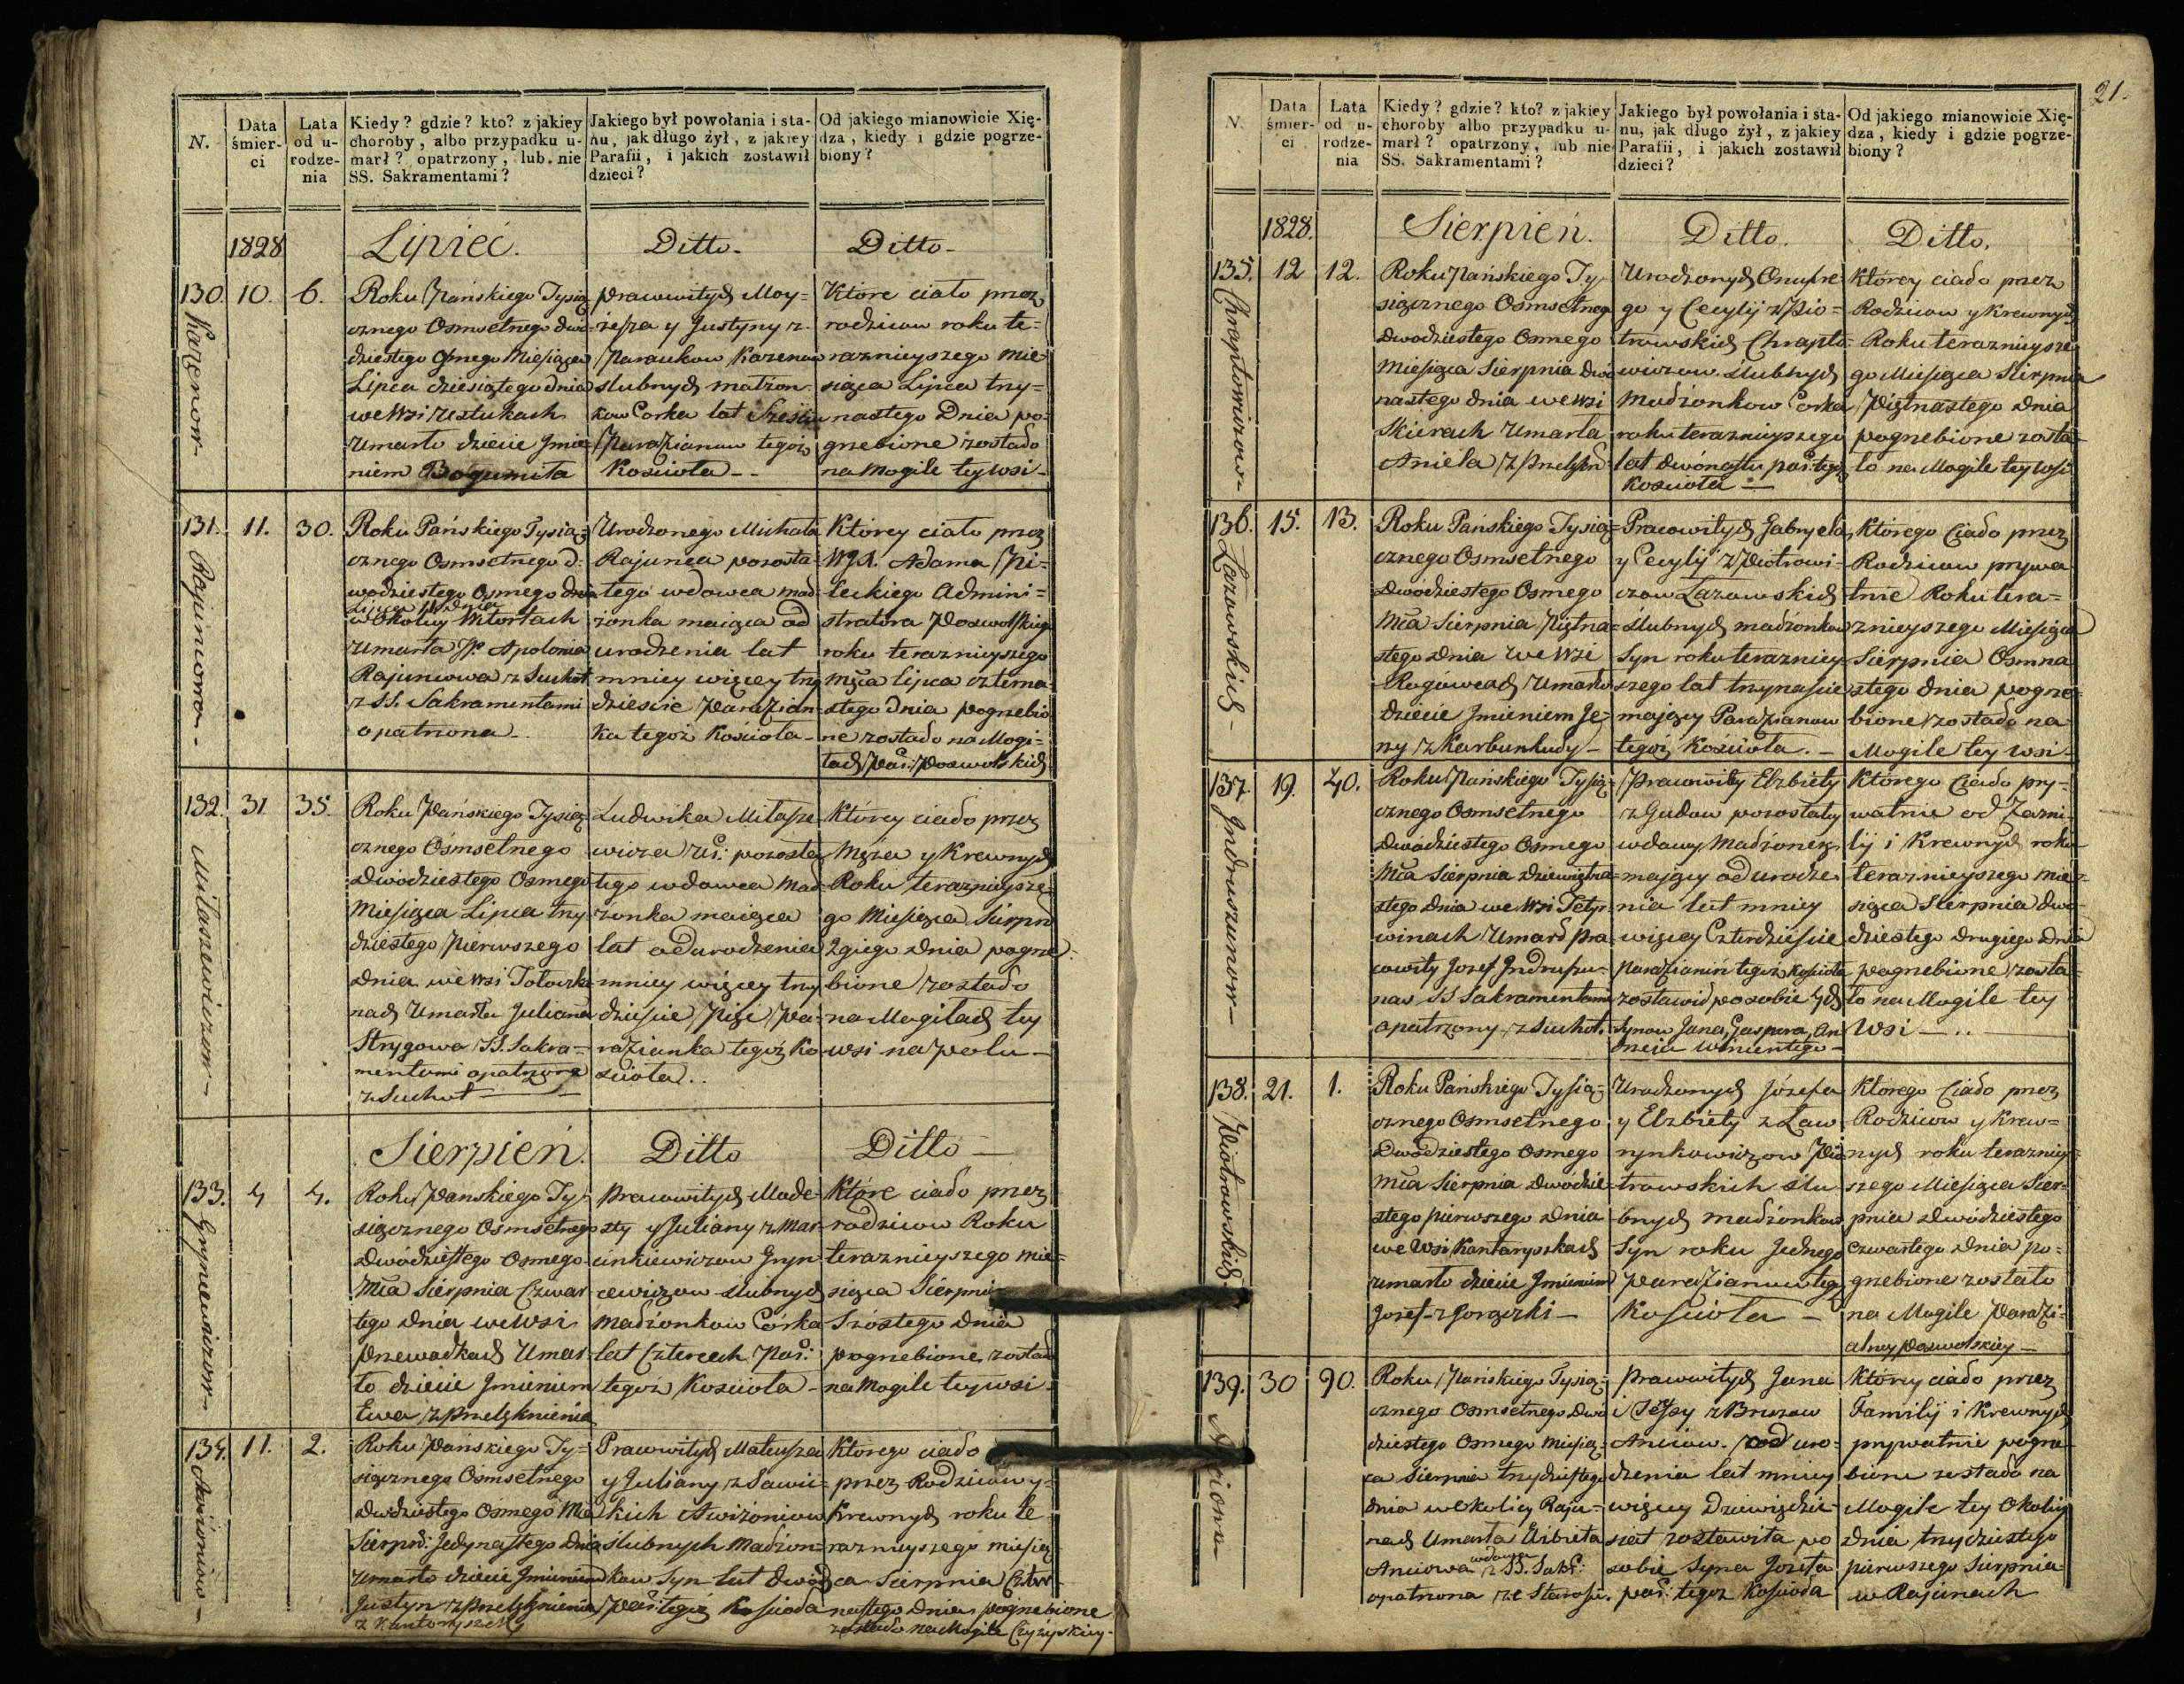 N.
Data śmier-ci
Lata od u-rodze-nia
Kiedy? gdzie? kto? z jakiey
choroby, albo przypadku u-
marł? opatrzony, lub nie
SS. Sakramentami?
Jakiego był powołania i sta-
nu, jak długo żył, z jakiey
Parafii, i jakich zostawił
dzieci?
Od jakiego mianowicie Xię-
dza, kiedy i gdzie pogrze-
biony?
1828
Lipiec.
Ditto.
Ditto
130. 10. 6.
Roku Pańskiego Tysią
cznego Osmsetnego dwó
dziestego Osmego Miesiąca
Lipca dziesiątego dnia
we Wsi
Umarło dziecie Jmie=
niem Bogumiła
Prawowitych Moy=
żesza y Justyny z
Karenow
slubnych małżon=
kow Corka lat Sześciu
Parafianow tegoż
Kościoła
Ktore ciało przez
rodzicow roku te=
raznieyszego Mie
siąca Lipca trzy=
nastego Dnia po=
grzebione zostało
na Mogile tey wsi
131. 11. 30. Rajunowa
Roku Pańskiego Tysią=
cznego Osmsetnego d=
wodziestego Osmego
Lipca 11 Dnia
w Okolicy
Umarła Apolonia
Rajunowa z Suchot
z SS. Sakramentami
opatrzona
Urodzonego Michała
Rajunca pozosta
tego wdowca mał=
żonka maiąca od
urodzenia lat
mniey więcey trzy
dzieście Parafian=
ka tegoż Kościoła
Ktorey ciało przez
WJX. Adama Pi=
leckiego Admini=
stratora Poswolskiego
roku teraznieyszego
Mca Lipca czterna
stego dnia pogrzebio
ne zostało na Mogi=
łach Par: Poswolskich
132. 31 35. Miłaszewiczow
Roku Pańskiego Tysią
cznego Ośmsetnego
Dwódziestego Osmego
Miesiąca Lipca trzy
dziestego Pierwszego
dnia we Wsi
Umarła Julianna
Strygowa SS. Sakra=
mentami opatrzona
z Suchot
Ludwika Miłasze
wicza pozosta
tego wdowca Mał
żonka maiąca
lat od urodzenia
mniey więcey trzy
dzieście Pięć Pa=
rafianka tegoż Ko
ścioła
Ktorey ciało przez
Męża y Krewnych
Roku teraznieysze
go Miesiąca Sierpn
2giego Dnia pogrze
bione zostało
na Mogiłach tey
wsi na Polu
Sierpień.
Ditto
Ditto
133. 4 4. Gryncewiczow
Roku Pańskiego Ty
siącznego Osmsetnego
Dwódziestego Osmego
Mca Sierpnia Czwar
tego dnia we Wsi
Umar
ło dziecie Jmieniem
Ewa z Przelęknienia
Prawowitych Mode
sty y Juliany z Mar
cinkiewiczow Gryn
cewiczow slubnych
Małżonkow Corka
lat Czterech Par:
tegoż Kościoła
Ktore ciało przez
rodzicow Roku
teraznieyszego Mie=
siąca Sierpnia
Szóstego Dnia
pogrzebione zostało
na Mogile tey wsi
134. 11. 2.
Roku Pańskiego Ty=
siącznego Osmsetnego
Dwodziestego Osmego Mca
Sierpn: Jedynastego Dnia
Umarło dziecie Jmieniem
Justyn z Przelęknienia
Prawowitych Mateusza
y Juliany z Sawic=
kich Awiżoniow
slubnych Małżon=
kow Syn lat dwóch
Par: tegoż Kościoła
Ktorego ciało
przez Rodzicow y
Krewnych roku te
raznieyszego miesią
ca Sierpnia Czter
nastego Dnia pogrzebione
zostało na Mogile
21.
N.
Data śmier-ci
Lata od u-rodze-nia
Kiedy? gdzie? kto? z jakiey
choroby albo przypadku u-
marł? opatrzony, lub nie
SS. Sakramentami?
Jakiego był powołania i sta-
nu, jak długo żył, z jakiey
Parafii, i jakich zostawił
dzieci?
Od jakiego mianowicie Xię-
dza, kiedy i gdzie pogrze-
biony?
1828.
Sierpień.
Ditto.
Ditto.
135. 12 12. Chraptowiczow
Roku Pańskiego Ty
siącznego Osmsetnego
Dwodziestego Osmego
Miesiąca Sierpnia Dwó
nastego dnia we Wsi
Skierach Umarła
Aniela z Przelękn
Urodzonych Onufre
go y Cecylij z Pio=
trowskich Chrapto=
wiczow Slubnych
Małżonkow Corka
roku teraznieyszego
lat Dwónastu par: tegoż
Kościoła
Ktorey ciało przez
Rodzicow y Krewnych
Roku teraznieysze
go Miesiąca Sierpnia
Piętnastego Dnia
pogrzebione zosta=
ło na Mogile tey Wsi
136. 15. 13. Łazowskich
Roku Pańskiego Tysią=
cznego Osmsetnego
Dwódziestego Osmego
Mca Sierpnia Piętna=
stego Dnia we Wsi
Umarło
Dziecie Jmieniem Je=
rzy z Karbunkuły
Pracowitych Gabryela
y Cecylij z Piotrowi=
czow Łazowskich
Ślubnych małżonkow
Syn roku terazniey
szego lat trzynaście
mający Parafianow
tegoż Kościoła.
Ktorego Ciało przez
Rodzicow prywa
tnie Roku tera=
znieyszego Miesiąca
Sierpnia Osmna
stego Dnia pogrze=
bione zostało na
Mogile tey wsi
137. 19. 40. Jndruszunow
Roku Pańskiego Tysią=
cznego Osmsetnego
Dwódziestego Osmego
Mca Sierpnia Dziewiętna=
stego Dnia we Wsi Tetyr
winach Umarł Pra
cowity Jozef Jndruszu=
nas SS Sakramentami
opatrzony z Suchot.
Pracowitey Elzbiety
z Gudow pozostałey
wdowy Małżonek
mający od urodze
nia lat mniey
więcey Czterdzieście
Parafianin tegoż Kościoła
zostawił po sobie 4ch
Synow Jana, Gaspera, An
Wincentego
Ktorego Ciało pry=
watnie od Fami=
lij i Krewnych roku
teraznieyszego Mie=
siąca Sierpnia Dwó
dziestego Drugiego Dnia
pogrzebione zosta=
ło na Mogile tey
Wsi
138. 21. 1. Piotrowskich
Roku Pańskiego Tysią=
cznego Osmsetnego
Dwódziestego Osmego
Mca Sierpnia Dwódzie=
stego Pierwszego Dnia
we Wsi Kantaryszkach
umarło dziecie Jmieniem
Jozef z Gorączki
Urodzonych Józefa
y Elzbiety z Ław
rynkowiczow Pio
trowskich Slu
bnych małżonkow
Syn roku Jednego
Parafianow tegoż
Kościoła
Ktorego Ciało przez
Rodzicow y Krew=
nych roku terazniey=
szego Miesiąca Sier=
pnia Dwódziestego
Czwartego Dnia po=
grzebione zostało
na Mogile Parafi=
alney Poswolskiey
139. 30 90.
Roku Pańskiego Tysią=
cznego Osmsetnego Dwó
dziestego Osmego Miesią=
ca Sierpnia trzydziestego
dnia w okolicy Raju=
nach Umarła Elzbieta
wdowa
z SS. Sakr:
opatrzona ze Starości.
Prawowitych Jana
od uro=
dzenia lat mniey
więcey Dziewięćdzie=
siąt zostawiła po
sobie Syna Jozefa
par: tegoż Kościoła
Ktorey ciało przez
Familij i Krewnych
prywatnie pogrze
bione zostało na
Mogile tey Okolicy
Dnia trzydziestego
pierwszego Sierpnia
w Rajunach